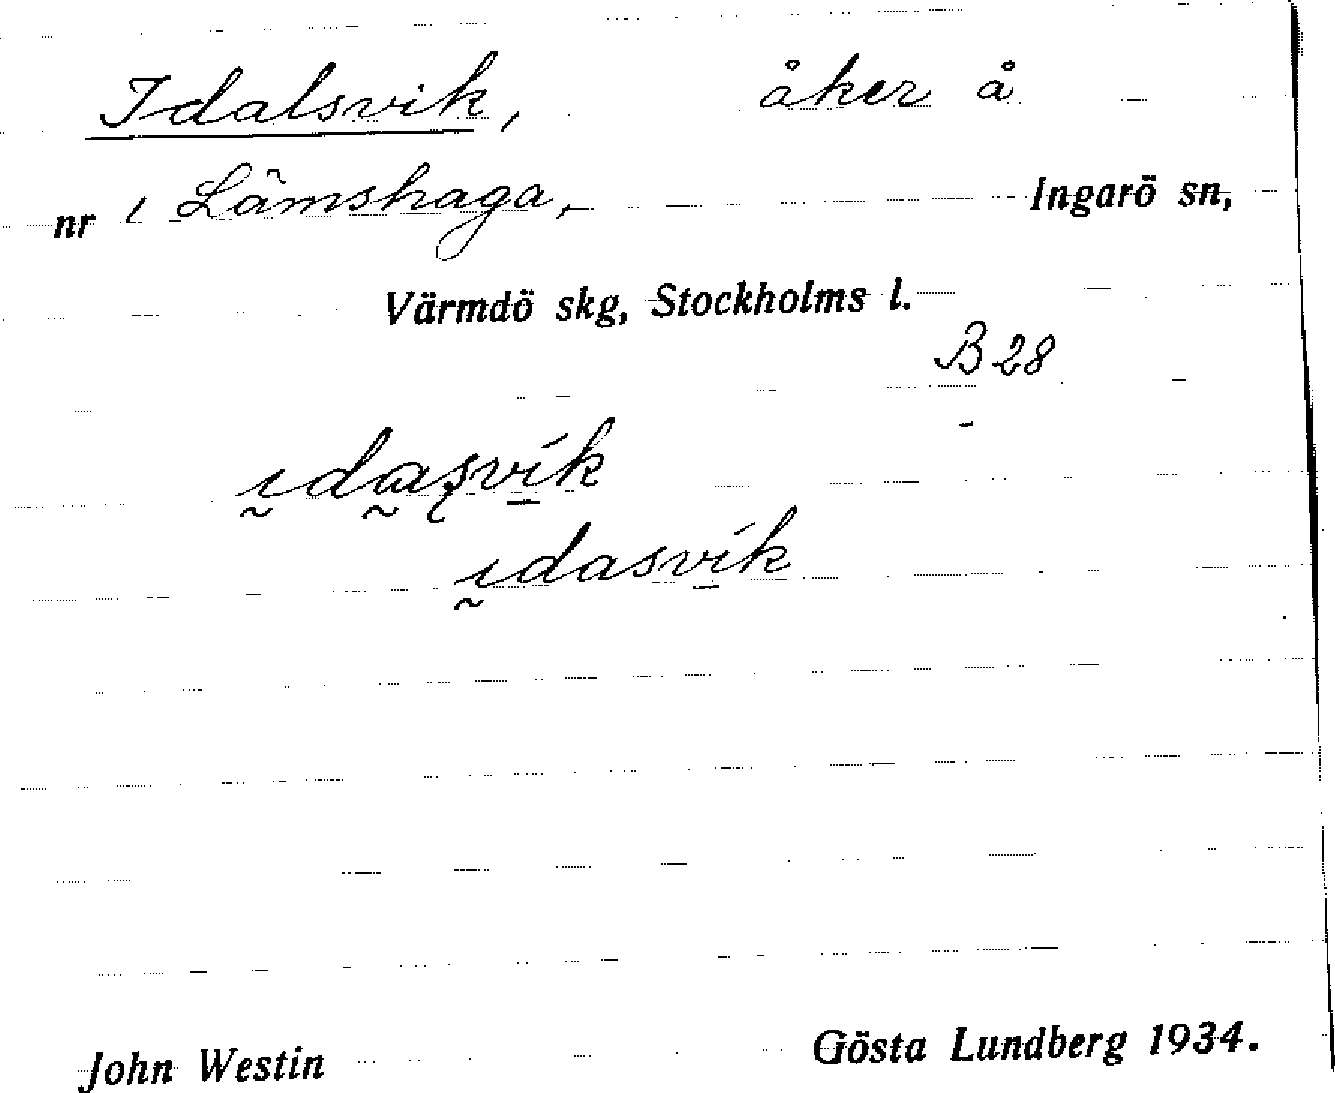 Idalsvik, åker å
nr 1 Lämshaga, Ingarö sn,
Värmdö skg, Stockholms l.
B 28
ıdasvík
ıdasvík
John Westin Gösta Lundberg 1934.